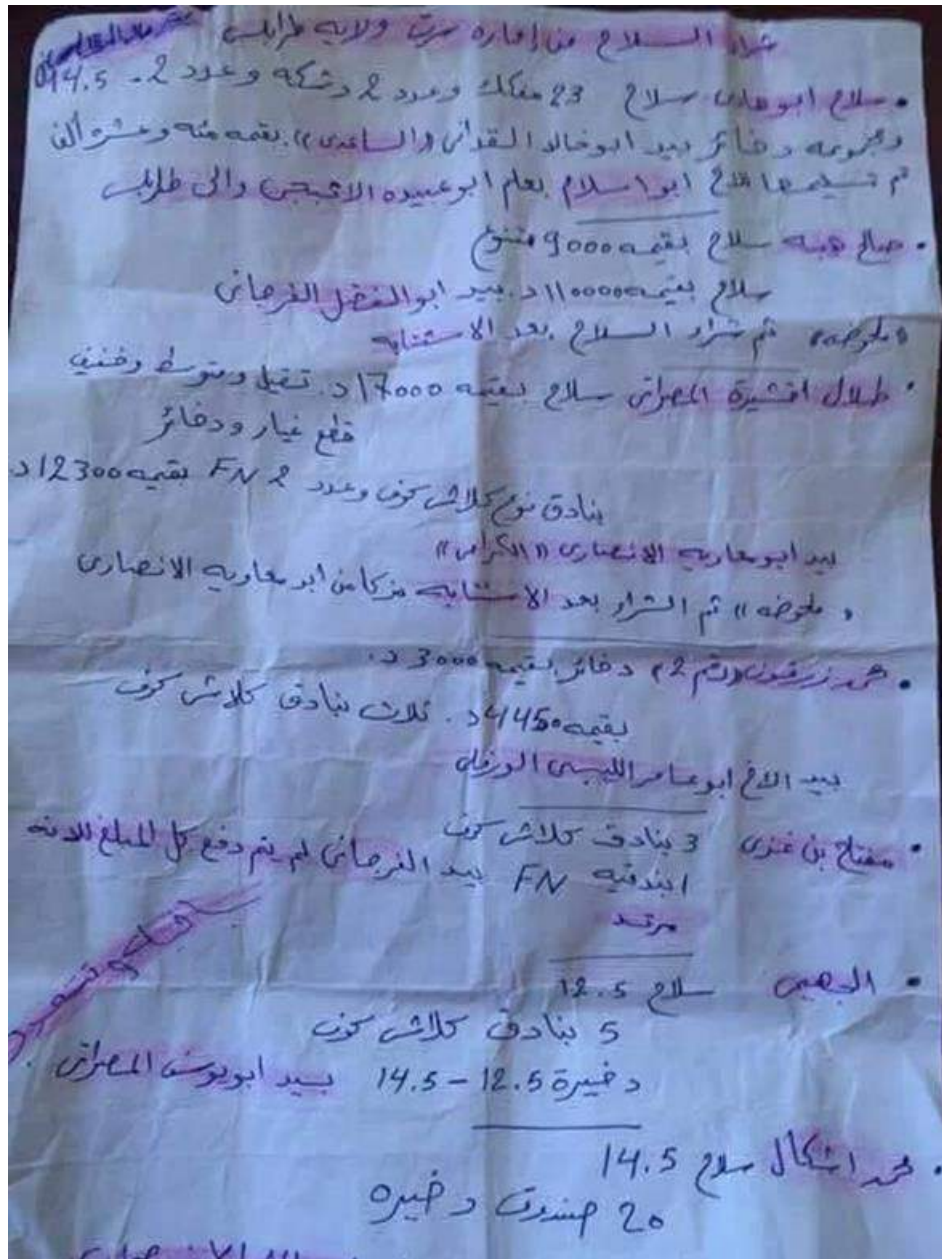 شراء السلاح من إمارة سرت ولاية طرابلس
• سلاح ابوهادى سلاح 23 مفكك وعدد 2 دشكه وعدد 2 - 14.5
ومجموعه دخائر بيد ابوخالد القدافى «الساعدى» بقيمه مئه وعشر ألف
تم تسليمها للاخ ابو اسلام بعلم ابو عبيده والى طرابلس
• صالح هبه سلاح بقيمه 9000 متنوع
سلاح بقيمه 110000 د. بيد ابو الفضل الفرجانى
«ملحوضه» تم شراء السلاح بعد الاستتابه
• طلال المصراتى سلاح بقيمه 17000 د. تقيل ومتوسط وخفيف
قطع غيار ودخائر
بنادق نوع كلاش كوف وعدد 2 FN بقيمه 12300 د.
بيد ابو معاويه الانصارى «الكرامى»
«ملحوضه» تم الشراء بعد الاستتابه مزكا من ابو معاويه الانصارى
• محمد زرقون «رقم 2» دخائر بقيمه 3000 د.
بقيمه 4450 د. ثلاث بنادق كلاش كوف
بيد الاخ ابو عامر الليبى الورفلى
• مفتاح بن غزى 3 بنادق كلاش كوف
1 بندقيه FN بيد الفرجانى لم يتم دفع كل المبلغ لانه
مرتد
• سلاح 12.5
5 بنادق كلاش كوف
دخيرة 12.5 - 14.5 بيد ابو يوسف المصراتى
• محمد اشكال سلاح 14.5
20 صندوق دخيره